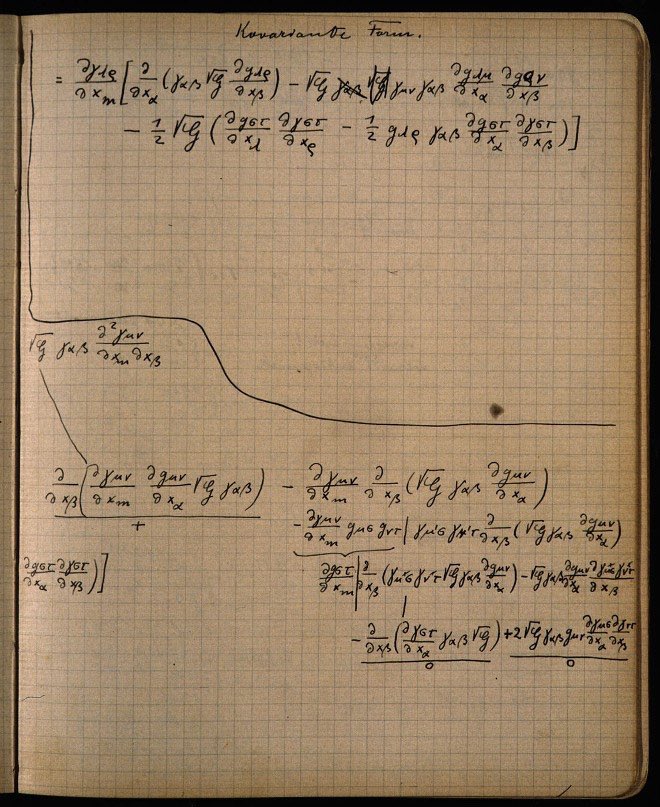 Kovariante Form.
= ∂γ_lρ/∂x_m [ ∂/∂x_α (γ_αβ √G ∂g_lρ/∂x_β) − √G γ_μν γ_αβ ∂g_lμ/∂x_α ∂g_ρν/∂x_β
− 1/2 √G ( ∂g_στ/∂x_l ∂γ_στ/∂x_ρ − 1/2 g_lρ γ_αβ ∂g_στ/∂x_α ∂γ_στ/∂x_β ) ]
√G γ_αβ ∂²γ_μν/∂x_m ∂x_β
∂/∂x_β ( ∂γ_μν/∂x_m ∂g_μν/∂x_α √G γ_αβ ) − ∂γ_μν/∂x_m ∂/∂x_β (√G γ_αβ ∂g_μν/∂x_α)
+
− ∂γ_μν/∂x_m g_μσ g_ντ | γ_μ'σ γ_ν'τ ∂/∂x_β (√G γ_αβ ∂g_μν/∂x_α)
∂g_στ/∂x_α ∂γ_στ/∂x_β ) ]
∂g_στ/∂x_m | ∂/∂x_β (γ_μ'σ γ_ν'τ √G γ_αβ ∂g_μν/∂x_α) − √G γ_αβ ∂g_μν/∂x_α ∂γ_μσ γ_ντ/∂x_β
− ∂/∂x_β ( ∂γ_στ/∂x_α γ_αβ √G ) + 2 √G γ_αβ g_μν ∂γ_μσ/∂x_α ∂γ_ντ/∂x_β
0 0